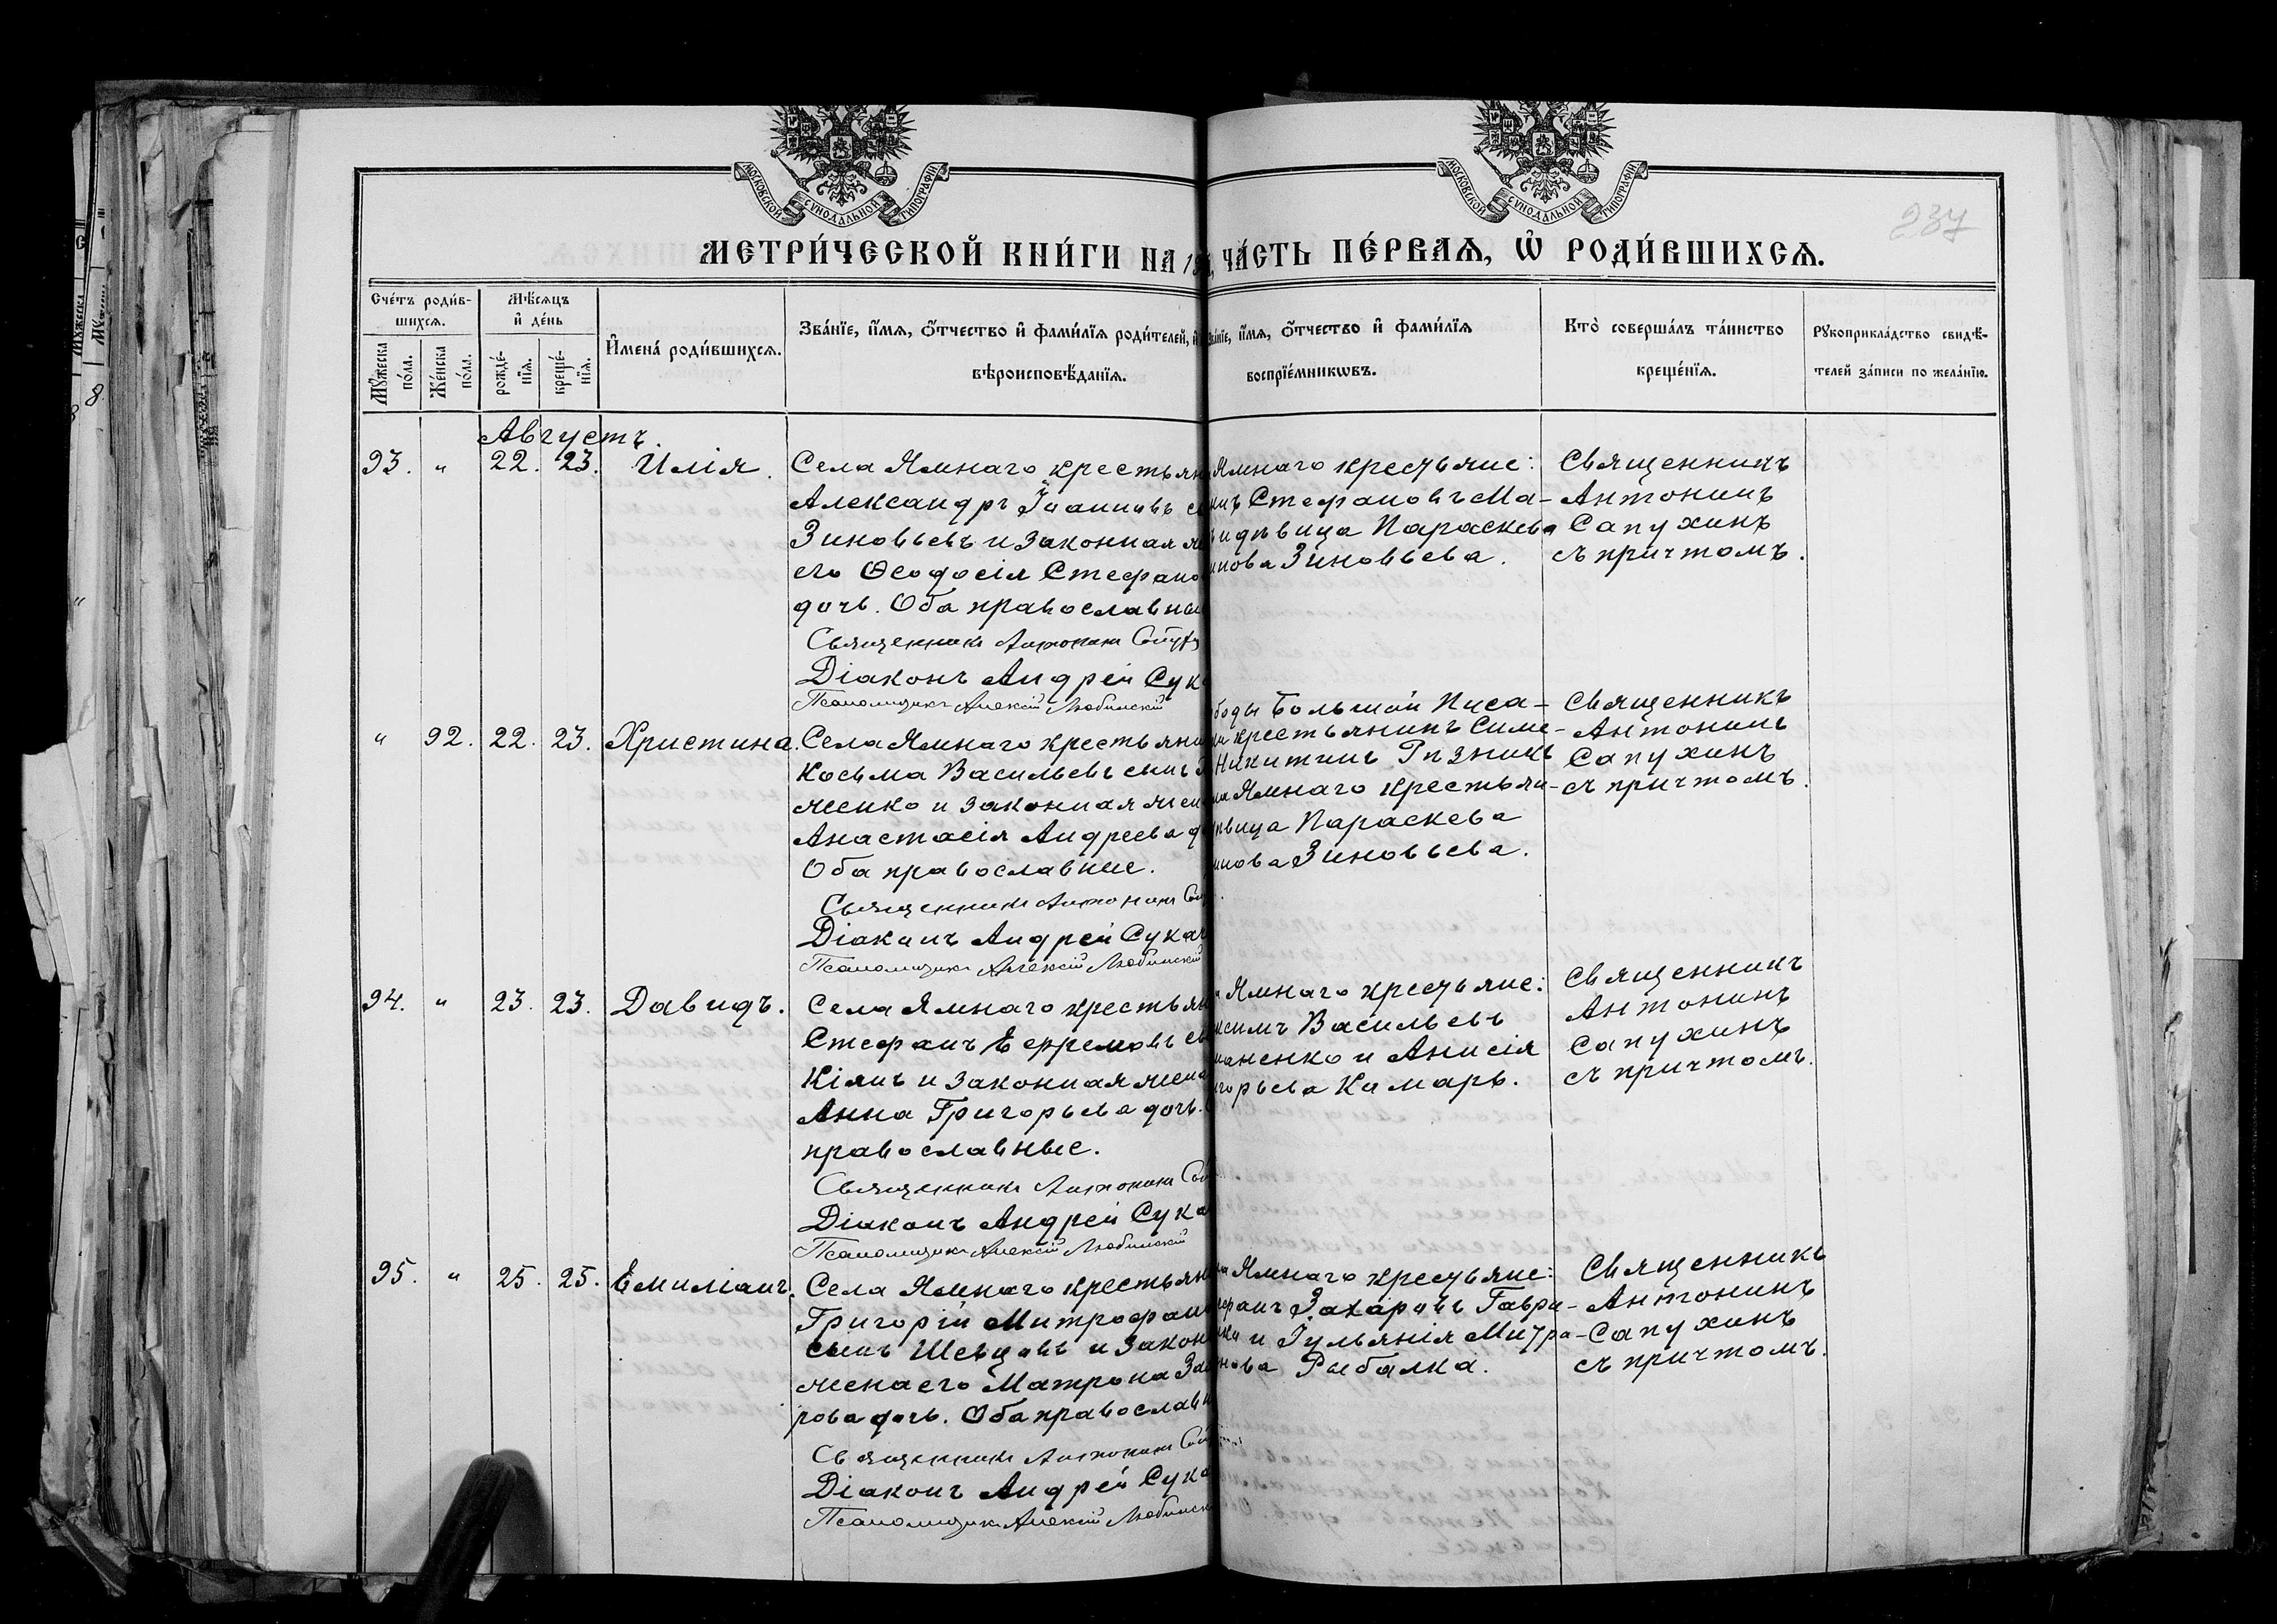 МОСКОВСКОЙ СѴНОДАЛЬНОЙ ТИПОГРАФІИ
МОСКОВСКОЙ СѴНОДАЛЬНОЙ ТИПОГРАФІИ
237
МЕТРИ́ЧЕСКОЙ КНИ́ГИ НА 19
ЧА́СТЬ ПЕ́РВАѦ, Ѡ҆ РОДИ́ВШИХСѦ.
Сче́тъ роди́в-
шихсѧ.
Мꙋ́жеска по́ла.
Же́нска по́ла.
Мѣ́сѧцъ
и҆ де́нь
рожде́-
нїѧ.
креще́-
нїѧ.
И҆мена̀ роди́вшихсѧ.
Зва́нїе, и҆́мѧ, ѻ҆́тчество и҆ фами́лїѧ роди́телей, и҆
вѣроисповѣ́данїѧ.
Зва́нїе, и҆́мѧ, ѻ҆́тчество и҆ фами́лїѧ
воспрїе́мникѡвъ.
Кто̀ соверша́лъ та́инство
креще́нїѧ.
Рꙋкоприкла́дство свидѣ́-
телей за́писи по жела́нїю.
Августъ.
93. " 22. 23. Илія.
Села Ямнаго крестьян
Александръ Іоанновъ с
Зиновьевъ и законная же
его Ѳеодосія Стефано
дочь. Оба православны
Священникъ Антонинъ Сапух
Діаконъ Андрей Сук
Псаломщикъ Алексій Любинскій
Ямнаго крестьяне:
Стефановъ Ма-
и дѣвица Параскева
нова Зиновьева.
Священникъ
Антонинъ
Сапухинъ
съ причтомъ.
" 92. 22. 23. Христина.
Села Ямнаго крестьяни
Косьма Васильевъ сынъ
женко и законная жена
Анастасія Андреева д
Оба православные.
Священникъ Антонинъ Сап
Діаконъ Андрей Сукач
Псаломщикъ Алексій Любинскій
боды Большой Писа-
крестьянинъ Симе-
Никитинъ
Ямнаго крестьян-
ѣвица Параскева
нова Зиновьева.
Священникъ
Антонинъ
Сапухинъ
съ причтомъ.
94. " 23. 23. Давидъ.
Села Ямнаго крестьян
Стефанъ Ефремовъ сы
Кіянъ и законная жена
Анна Григорьева дочь.
православные.
Священникъ Антонинъ Сап
Діаконъ Андрей Сука
Псаломщикъ Алексій Любинскій
Ямнаго крестьяне:
ксимъ Васильевъ
маненко и Анисія
горьева Камарь.
Священникъ
Антонинъ
Сапухинъ
съ причтомъ.
95. " 25. 25. Емиліанъ.
Села Ямнаго крестьян
Григорій Митрофан
сынъ Шевцовъ и закон
жена его Матрона Заха
рова дочь. Оба православн
Священникъ Антонинъ Сап
Діаконъ Андрей Сука
Псаломщикъ Алексій Любинск
Ямнаго крестьяне:
фанъ Захаровъ Гаври-
и Іульянія Митро-
нова Рыбалка.
Священникъ
Антонинъ
Сапухинъ
съ причтомъ.